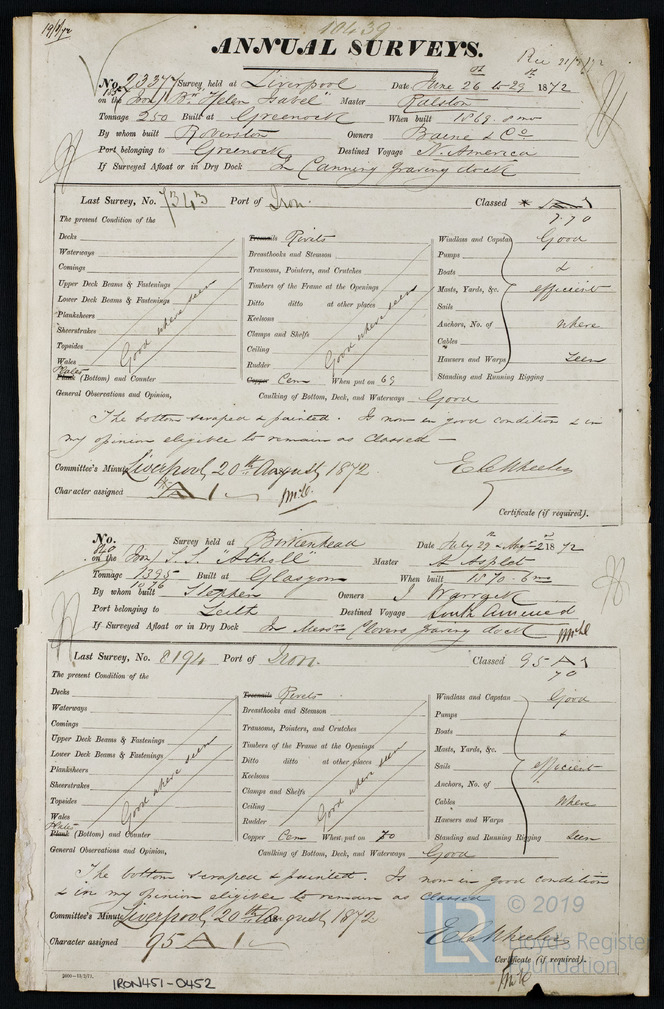 19/8/72
10439
ANNUAL SURVEYS.
Rec 21/8/72
No. 23377 Survey held at Liverpool Date June 26 to 29 1872
on the Iron Bn "Helen Isabel" Master Ralston
Tonnage 250 Built at Greenock When built 1869. 8 mo
By whom built Roverston Owners Baine & Co
Port belonging to Greenock Destined Voyage N. America
If Surveyed Afloat or in Dry Dock In Canning graving dock
Last Survey, No. 7343 Port of Iron. Classed
7.70
The present Condition of the
Decks
Waterways
Comings
Upper Deck Beams & Fastenings
Lower Deck Beams & Fastenings
Planksheers
Sheerstrakes
Topsides
Wales
Plates
Plank (Bottom) and Counter
Good where seen
Treenails Rivets
Breasthooks and Stemson
Transoms, Pointers, and Crutches
Timbers of the Frame at the Openings
Ditto ditto at other places
Keelsons
Clamps and Shelfs
Ceiling
Rudder
Copper Cem When put on 69
Good where seen
Windlass and Capstan Good
Pumps
Boats &
Masts, Yards, &c. efficient
Sails
Anchors, No. of where
Cables
Hawsers and Warps seen
Standing and Running Rigging
General Observations and Opinion, Caulking of Bottom, Deck, and Waterways Good
The bottom scraped & painted. Is now in good condition & in
my opinion eligible to remain as Classed —
Committee's Minute Liverpool, 20th August, 1872.
Character assigned A 1
Certificate (if required).
No. Survey held at Birkenhead Date July 29 & Aug 2 1872
on the Iron S.S. "Atholl" Master A Asplet
Tonnage 1395 Built at Glasgow When built 1870-6 mo
1876
By whom built Stephen Owners J Warrack
Port belonging to Leith Destined Voyage South America
If Surveyed Afloat or in Dry Dock In Messrs Clovers graving dock
Last Survey, No. 8194 Port of Iron. Classed 95 A 1
70
The present Condition of the
Decks
Waterways
Comings
Upper Deck Beams & Fastenings
Lower Deck Beams & Fastenings
Planksheers
Sheerstrakes
Topsides
Wales
Plates
Plank (Bottom) and Counter
Good where seen
Treenails Rivets
Breasthooks and Stemson
Transoms, Pointers, and Crutches
Timbers of the Frame at the Openings
Ditto ditto at other places
Keelsons
Clamps and Shelfs
Ceiling
Rudder
Copper Cem When put on 70
Good where seen
Windlass and Capstan Good
Pumps
Boats &
Masts, Yards, &c.
Sails efficient
Anchors, No. of
Cables where
Hawsers and Warps
Standing and Running Rigging seen
General Observations and Opinion, Caulking of Bottom, Deck, and Waterways Good
The bottom scraped & painted. Is now in good condition
& in my opinion eligible to remain as Classed
Committee's Minute Liverpool, 20th August, 1872
Character assigned 95 A 1
Certificate (if required).
IRON451-0452
LR © 2019
Lloyd's Register
Foundation